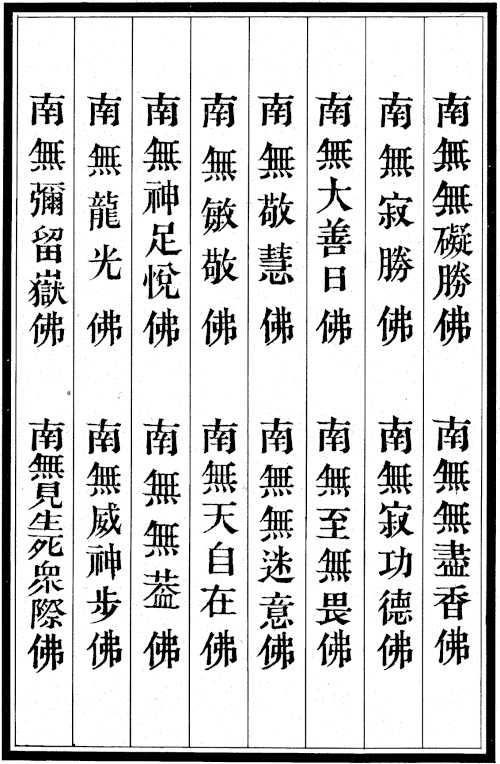 南無無礙勝佛 南無無盡香佛
南無寂勝佛 南無寂功德佛
南無大善日佛 南無至無畏佛
南無敬慧佛 南無無迷意佛
南無敏敬佛 南無天自在佛
南無神足悅佛 南無無蓋佛
南無龍光佛 南無威神步佛
南無彌留嶽佛 南無見生死眾際佛